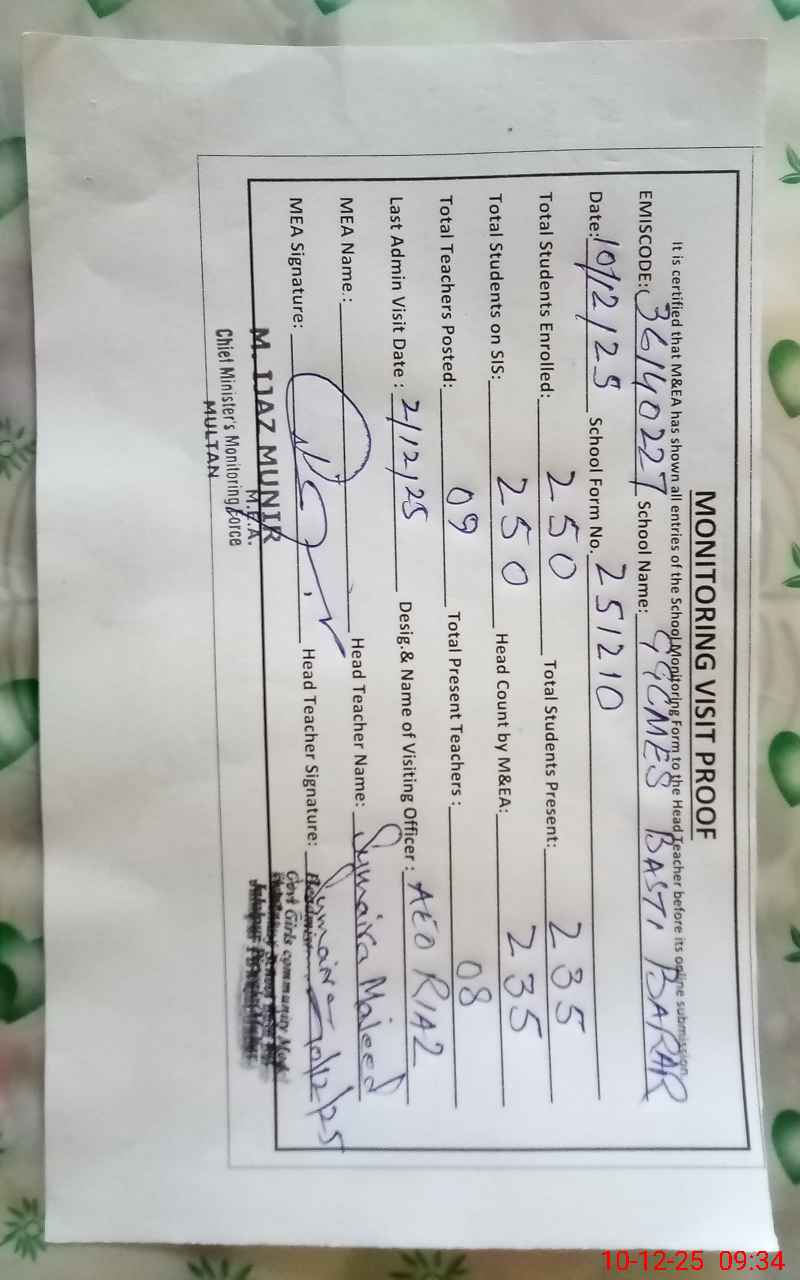 MONITORING VISIT PROOF
It is certified that M&EA has shown all entries of the School Monitoring Form to the Head Teacher before its online submission
EMISCODE: 36140227 School Name: GGCMES BASTI BARAR
Date: 10/12/25 School Form No. 251210
Total Students Enrolled: 250 Total Students Present: 235
Total Students on SIS: 250 Head Count by M&EA: 235
Total Teachers Posted: 09 Total Present Teachers : 08
Last Admin Visit Date : 2/12/25 Desig.& Name of Visiting Officer : AEO RIAZ
MEA Name.: Head Teacher Name: Sumaira Majeed
MEA Signature: Head Teacher Signature: Sumaira 10/12/25
M. IJAZ MUNIR
M.E.A.
Chief Minister's Monitoring Force
MULTAN
Govt Girls community Model
10-12-25 09:34